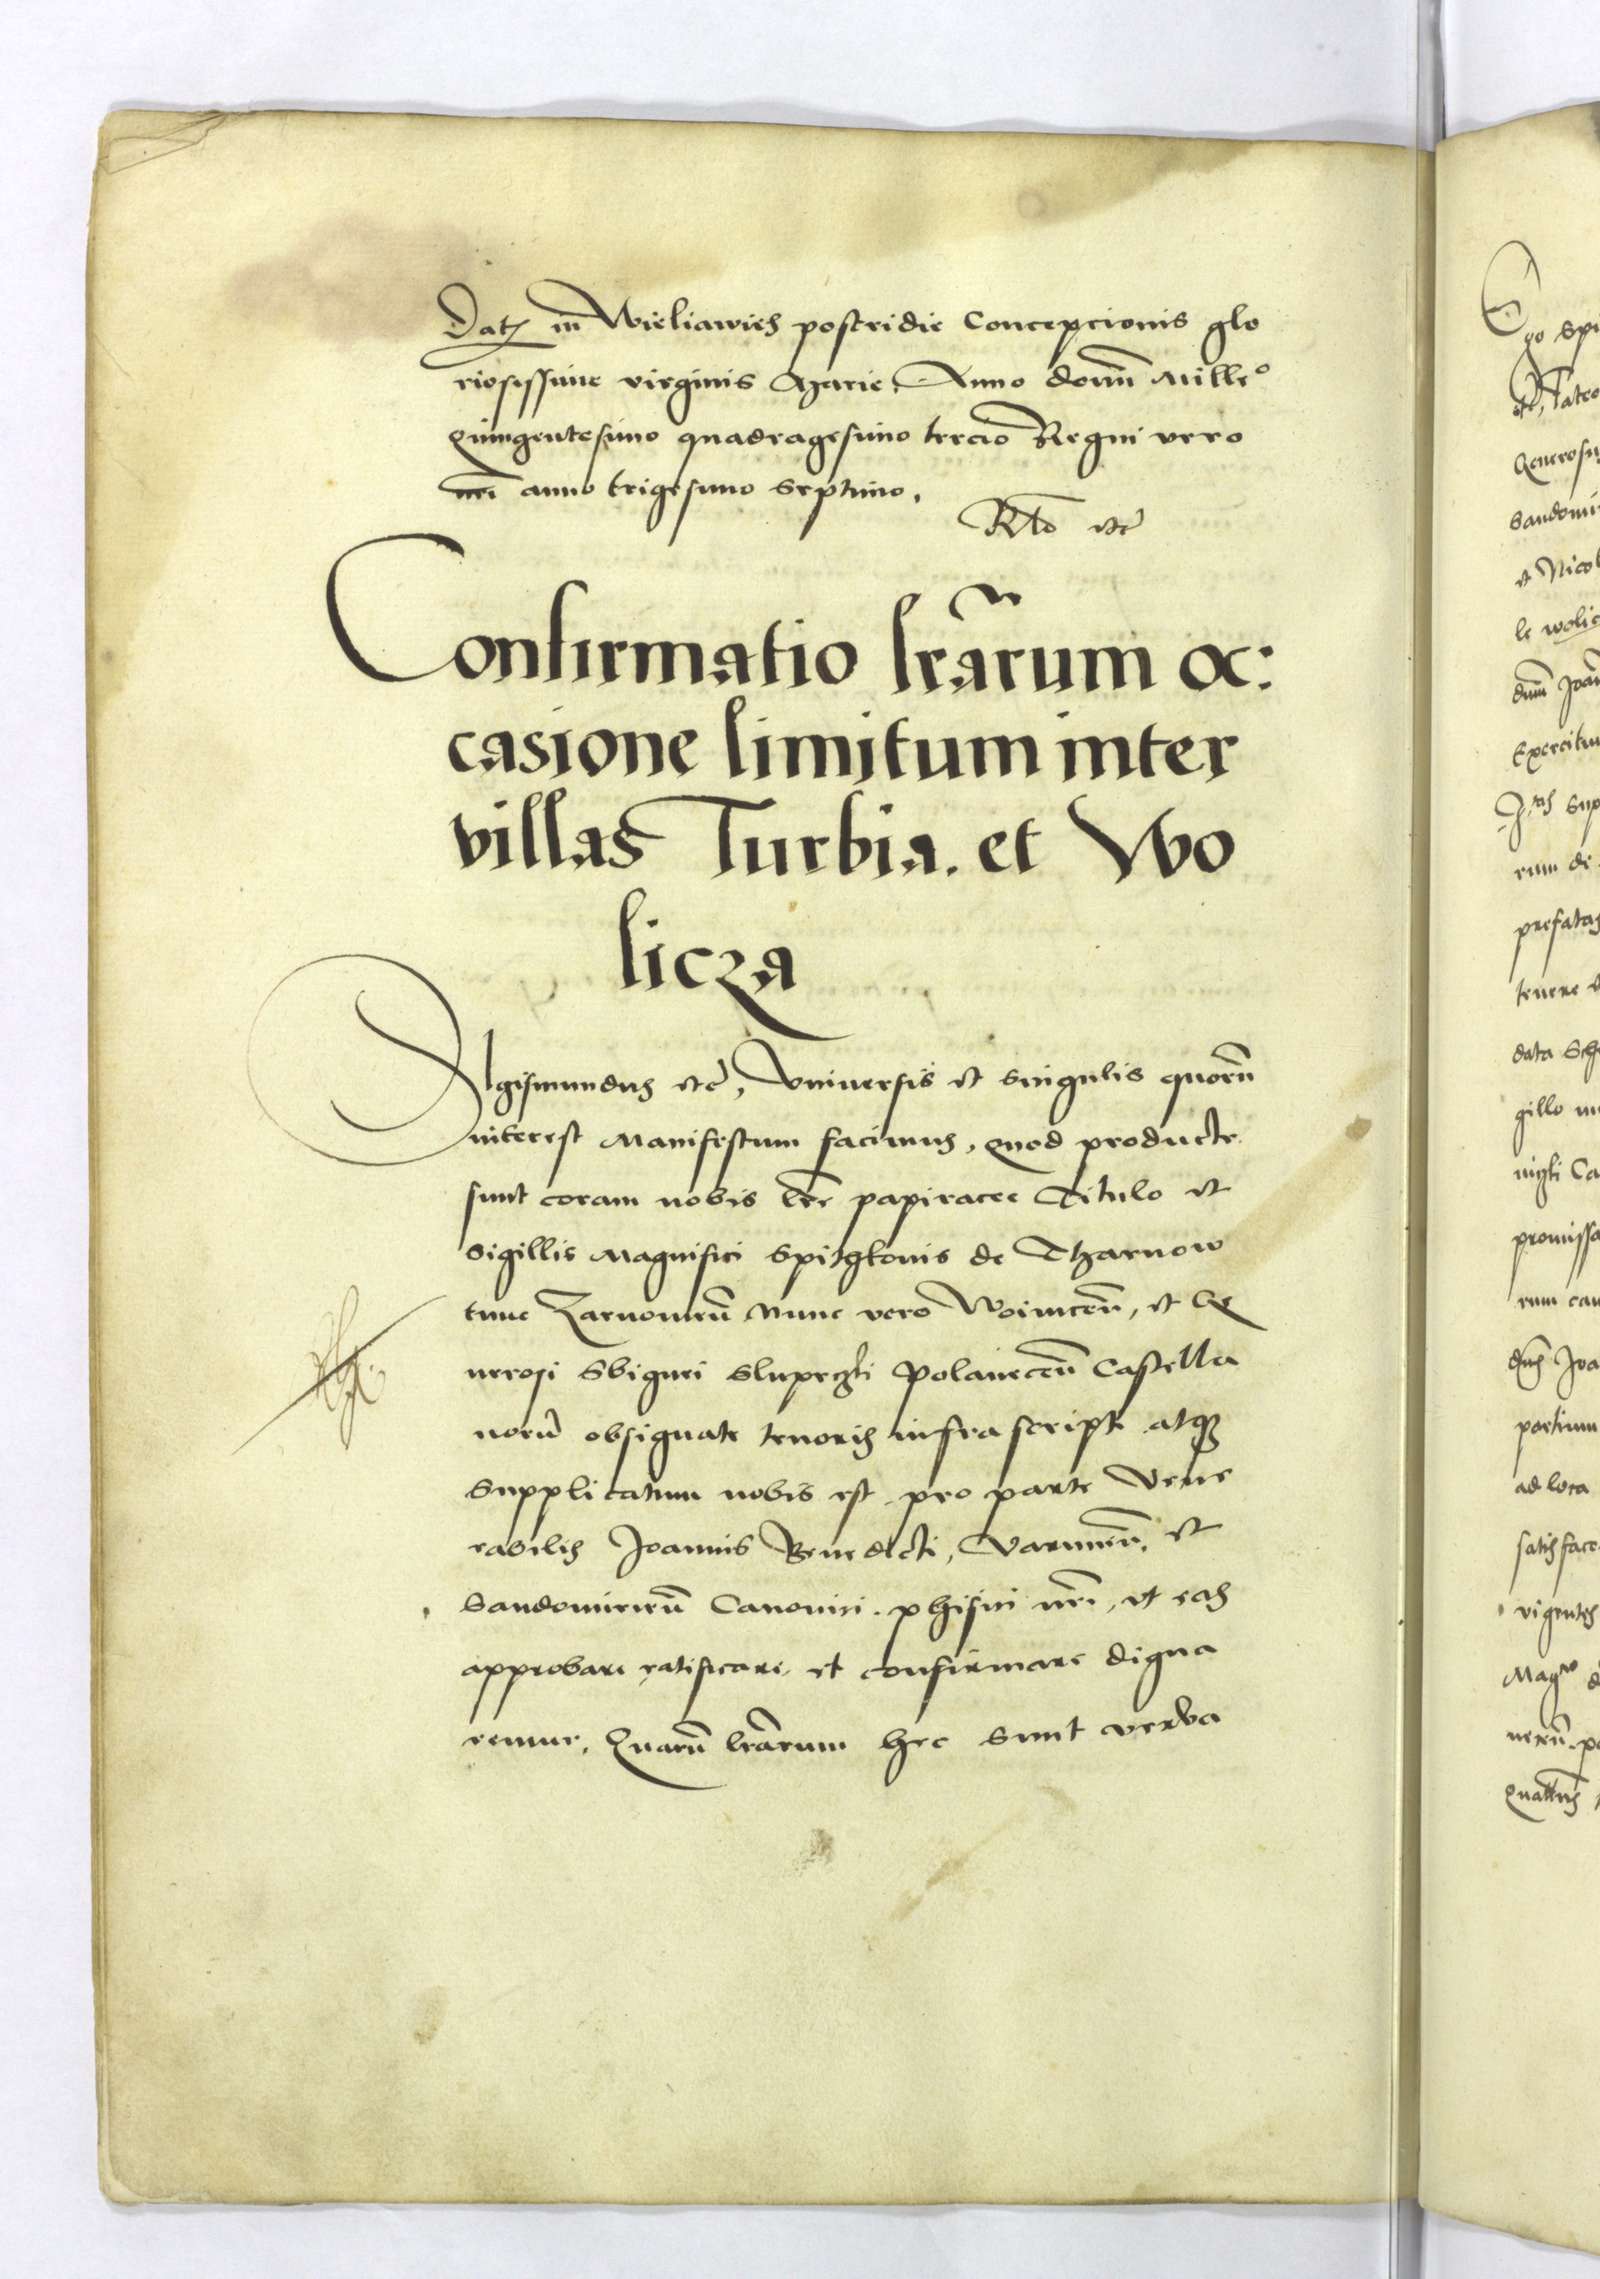 Datum in Wieliawies postridie Concepcionis glo
riosissime virginis Marie, Anno domini Mill°
quingentesimo quadragesimo tercio Regni vero
nri anno trigesimo septimo,
Rlo etc
Confirmatio lrarum oc:
casione limitum inter
villas Turbia. et Wo
licza
Sigismundus etc, Universis et singulis quorum
interest Manifestum facimus, quod producte
sunt coram nobis lre papiracee Titulo et
sigillis Magnifici Spithkonis de Tharnow
tunc Zarnowien Nunc vero Woinicen, et Ge
nerosi Sbignei Slupeczki Polanecen Castella
noru obsignate tenoris infrascripti atque
supplicatum nobis est pro parte Vene
rabilis Joannis Benedicti, Varmien, et
Sandomirien Canonici. phisici nri, ut eas
approbare ratificare et confirmare digna
remur, Quaru lrarum hec sunt verba
Ego Spi
etc, fateo
Generosu
Sandomir
et Nicol
le wolic
dnum Joan
Exercituu
rum de
prefatas
tenere
data
gillo
Ca
promissa
rum cau
dns Joa
partium
ad loca
satisface
vigentes